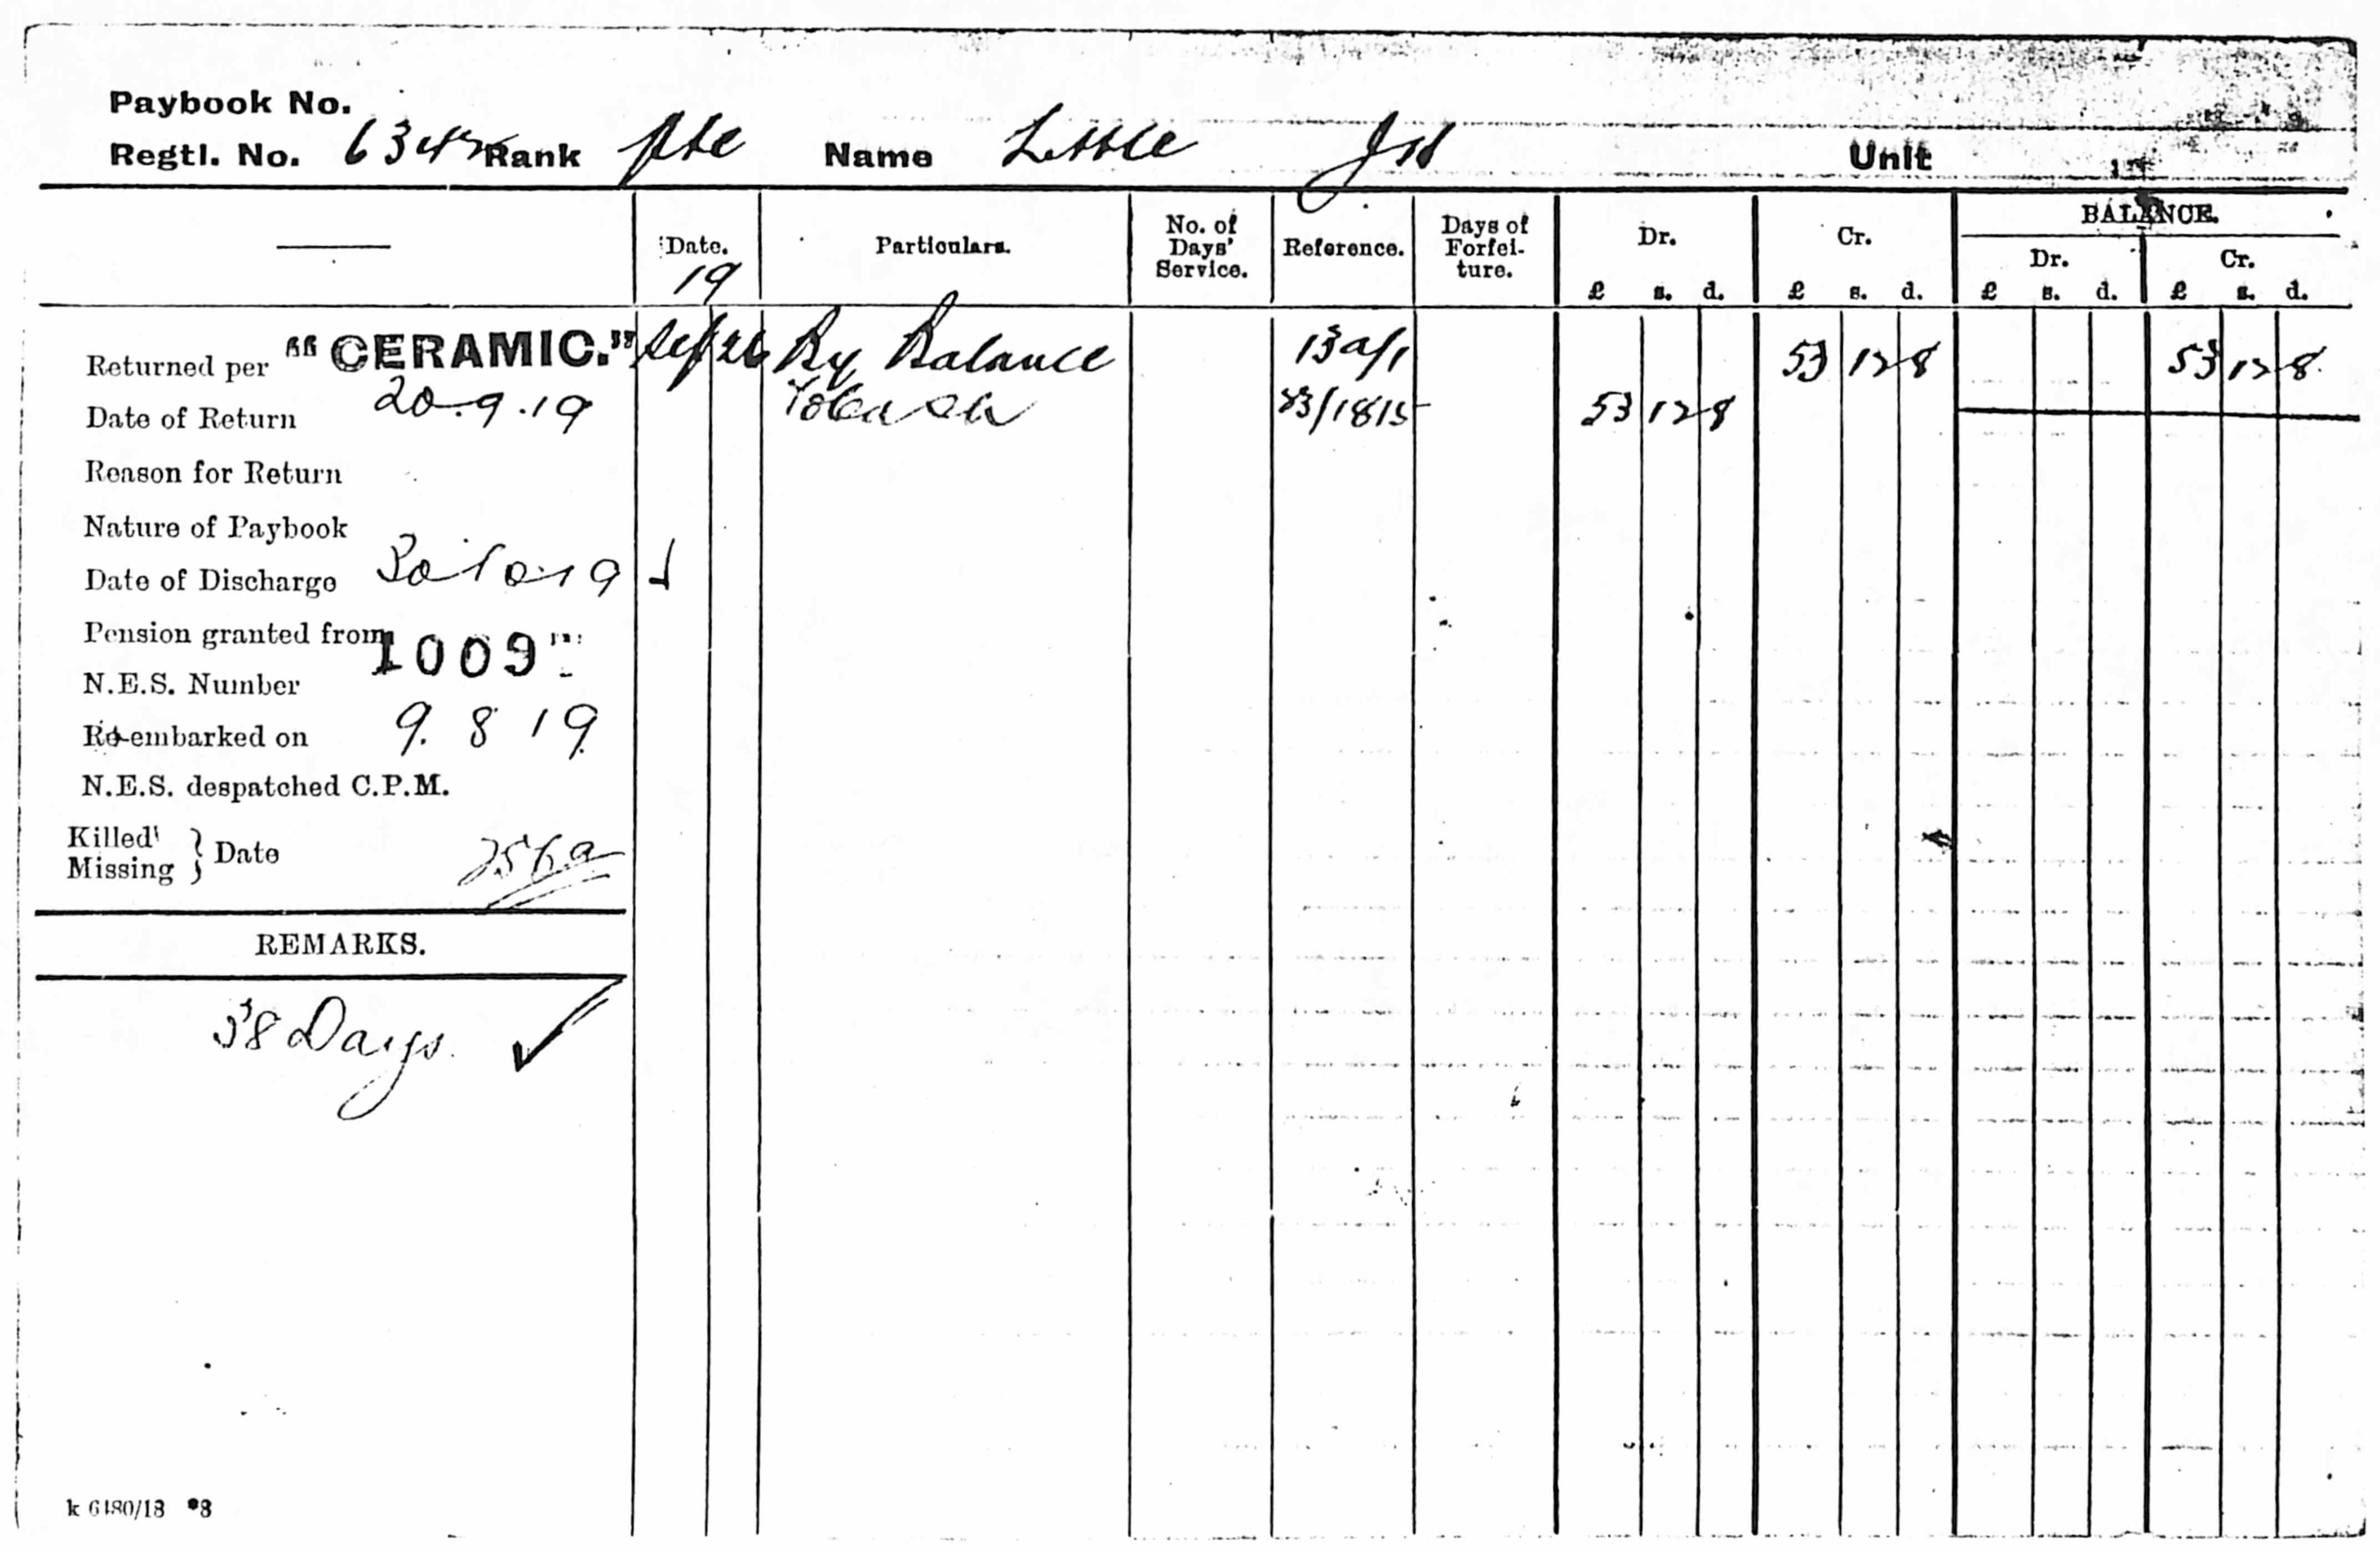 Paybook No.
Regtl. No. 6342 Rank Pte Name Little Unit
Date. Particulars. No. of Days' Service. Reference. Days of Forfeiture. Dr. Cr. BALANCE.
Dr. Cr.
19 £ s. d. £ s. d. £ s. d. £ s. d.
Returned per "CERAMIC." Sep 26 By Balance 13a/1 53 12 8 53 12 8
Date of Return 20.9.19 To Cash 53 12 8
Reason for Return
Nature of Paybook
Date of Discharge
Pension granted from
N.E.S. Number 1009
Re-embarked on 9. 8 19
N.E.S. despatched C.P.M.
Killed
Missing } Date
REMARKS.
Days.
k 6480/18